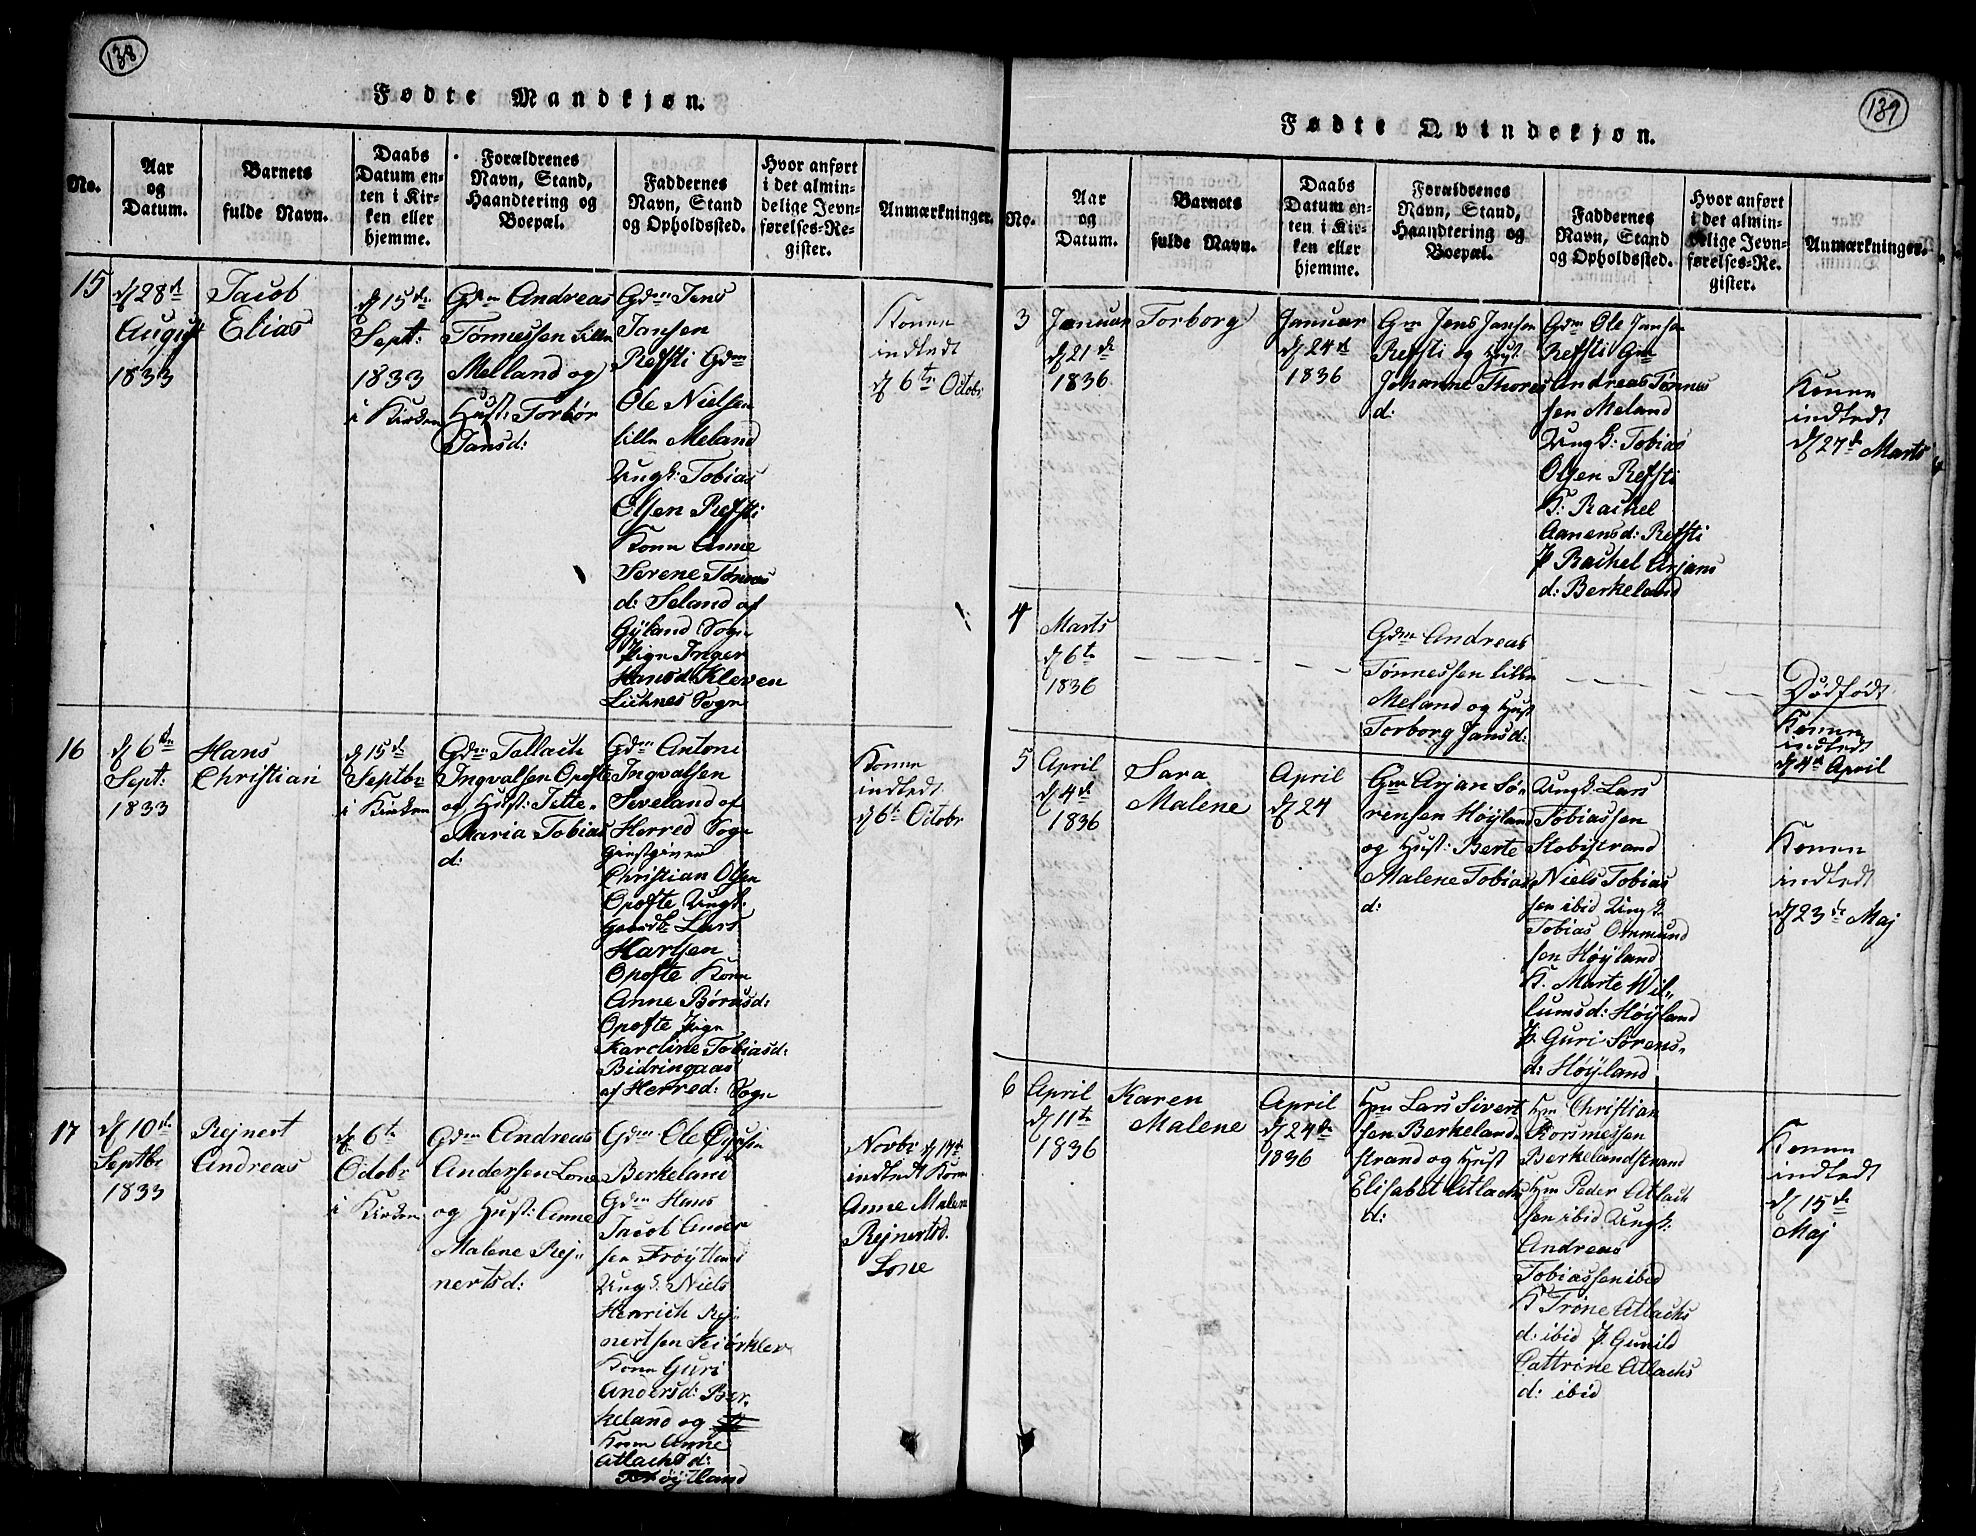 138
Fødte Mandkjøn.
No.
Aar
og
Datum.
Barnets
fulde Navn.
Daabs
Datum en-
ten i Kir-
ken eller
hjemme.
Forældrenes
Navn, Stand,
Haandtering og
Boepæl.
Faddernes
Navn, Stand
og Opholdssted.
Hvor anført
i det almin-
delige Jevn-
førelses-Re-
gister.
Anmærkninger.
15
d 28de
August
1833
Jacob
Elias
d 15de
Sept:
1833
i Kirken
Gdm Andreas
Tønnessen Lille
Melland og
Hust: Torbor
Jansd:
Gdm Jens
Jansen
Refsti Gdm
Ole Nielsen
Lille Meland
Ungk: Tobias
Olsen Refsti
Kone Anne
Serene Tønnes
d: Seland af
Gyland Sogn
Pige Inger
Hansd Kleven
Liknes Sogn
Konen
indledt
d 6te Octobr
16
d 6te
Sept:
1833
Hans
Christian
d 15de
Septbr
i Kirken
Gdm Tellach
Ingvalsen Opofte
og Hust: Jitte
Maria Tobias
d:
Gdm Antoni
Ingvalsen
Siveland af
Herred Sogn
Giestgiver
Christian Olsen
Opofte Ungk:
Lars
Hartsen
Opofte Kone
Anne Børusd:
Opofte Pige
Karoline Tobiasd:
Bidringaas
af Herred: Sogn
Konen
indledt
d 6te Octobr
17
d 10de
Septbr
1833
Rejnert
Andreas
d 6te
Octobr
i Kirken
Gdm Andreas
Andersen Lone
og Hust: Anne
Malene Rej-
nertsd:
Gdm Ole
Berkeland
Gdm Hans
Jacob Ander
sen Frøytland
Ungk: Niels
Henrich Rej-
nertsen Kiørklev
Kone Guri
Andersd: Ber-
keland og
Kone Anne
Atlachsd:
Frøytland
Novbr d 17de
indledt Kone
Anne Malene
Rejnertsd.
Lone
139
Fødte Qvindekjøn.
No.
Aar
og
Datum.
Barnets
fulde Navn.
Daabs
Datum en-
ten i Kir-
ken eller
hjemme.
Forældrenes
Navn, Stand,
Haandtering og
Boepæl.
Faddernes
Navn, Stand
og Opholdssted.
Hvor anført
i det almin-
delige Jevn-
førelses-Re-
gister.
Anmærkninger.
3
Januar
d 21de
1836
Torborg
Januar
d 24de
1836
Gm Jens Jansen
Refsti og Hust:
Johanne Thores
d:
Gdm Ole Jansen
Refsti Gm
Andreas Tønnes
sen Meland
Ungk: Tobias
Olsen Refsti
K: Rachel
Aanensd: Refsti
P Rachel Arjans
d: Berkeland
Konen
indledt
d 27de Marts
4
Marts
d 6te
1836
Gdm Andreas
Tønnessen Lille
Meland og Hust
Torborg Jansd:
Dødfødt
Konen
indledt
d 4de April
5
April
d 4de
1836
Sara
Malene
April
d 24
Gm Arjan Sø-
rensen Høyland
og Hust: Berte
Malene Tobias
d:
Ungk: Lars
Tobiassen
Stobistrand
Niels Tobias
sen ibid Ungk
Tobias Ommund
sen Høyland
K. Marte Wil-
lumsd: Høyland
P. Guri Sørens-
d: Høyland
Konen
indledt
d 23de Maj
6
April
d 11te
1836
Karen
Malene
April
d 24de
1836
Hm Lars Sivert
sen Berkeland-
strand og Hust
Elisabet Atlachs
d:
Hm Christian
Korsmessen
Berkelandstrand
Hm Peder Atlach
sen ibid Ungk:
Andreas
Tobiassen ibid
K Trone Atlachs
d: ibid P. Gunild
Cattrine Atlachs
d: ibid
Konen
indledt
d 15de
Maj